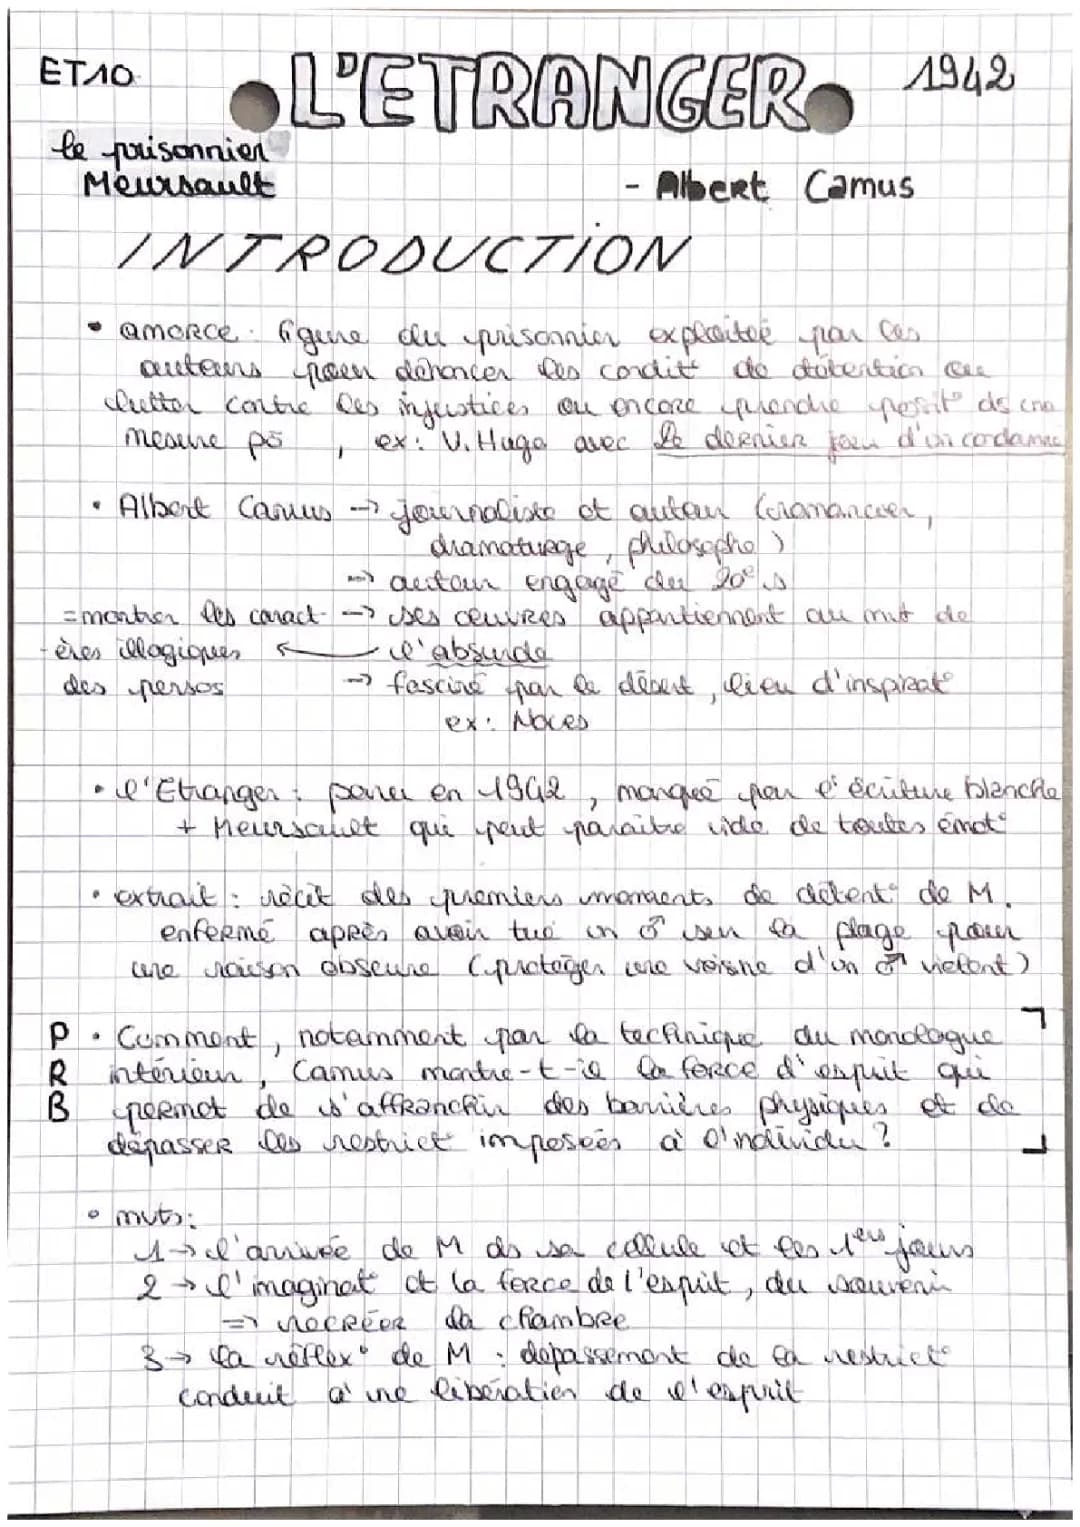 ET10
L'ETRANGER
1942
le prisonnier
Meursault
- Albert Camus
INTRODUCTION
• amorce : figure du prisonnier exploitée par les
auteurs pour dénoncer les condit° de détention ou
lutter contre les injustices ou encore prendre posit° ds une
mesure po , ex: V. Hugo avec le dernier jour d'un condamné
• Albert Camus → journaliste et auteur (romancier,
dramaturge, philosophe)
→ auteur engagé du 20e s
= montrer les caract- → ses œuvres appartiennent au mvt de
ères illogiques ← l'absurde
des persos → fasciné par le désert, lieu d'inspirat°
ex: Noces
• l'Etranger : paru en 1942, marqué par l'écriture blanche
+ Meursault qui peut paraître vide de toutes émot°
• extrait : récit des premiers moments de détent° de M.
enfermé après avoir tué un ♂ sur la plage pour
une raison obscure (protéger une voisine d'un ♂ violent)
P • Comment, notamment par la technique du monologue
R intérieur, Camus montre-t-il la force d'esprit qui
B permet de s'affranchir des barrières physiques et de
dépasser les restrict° imposées à l'individu ?
• mvts:
1 → l'arrivée de M ds sa cellule et les 1ers jours
2 → l'imaginat° et la force de l'esprit, du souvenir
⇒ recréer la chambre
3 → la réflex° de M : dépassement de la restrict°
conduit à une libération de l'esprit